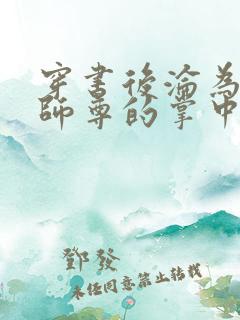 穿書後淪為
師尊的掌中
鄧發
未經同意禁止轉載